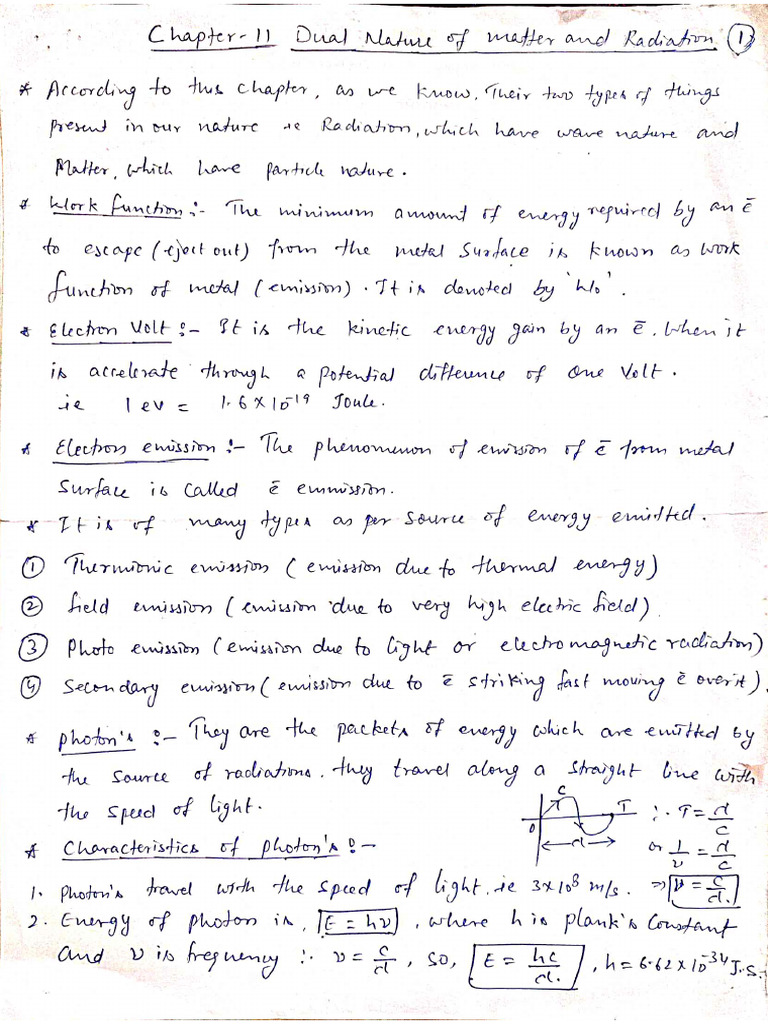 Chapter-11 Dual Nature of matter and Radiation ①
* According to this chapter, as we know, Their two types of things
present in our nature ie Radiation, which have wave nature and
Matter, which have particle nature.
* Work function :- The minimum amount of energy required by an ē
to escape (eject out) from the metal surface is known as work
function of metal (emission). It is denoted by 'W₀'.
* Electron Volt :- It is the kinetic energy gain by an ē, when it
is accelerate through a potential difference of one volt.
ie 1 ev = 1.6 × 10⁻¹⁹ Joule.
* Electron emission :- The phenomenon of emission of ē from metal
surface is called ē emmission.
* It is of many types as per source of energy emitted.
① Thermionic emission (emission due to thermal energy)
② field emission (emission due to very high electric field)
③ Photo emission (emission due to light or electromagnetic radiation)
④ Secondary emission (emission due to ē striking fast moving ē over it).
* Photon's :- They are the packets of energy which are emitted by
the source of radiations. they travel along a straight line with
the speed of light.
C O T λ ∴ T = λ/c
* Characteristics of photon's :- or 1/ν = λ/c
1. Photon's travel with the speed of light, ie 3×10⁸ m/s. ⇒ ν = c/λ.
2. Energy of photon is, E = hν, where h is plank's constant
and ν is frequency ∴ ν = c/λ, so, E = hc/λ. , h = 6.62 × 10⁻³⁴ J.S.